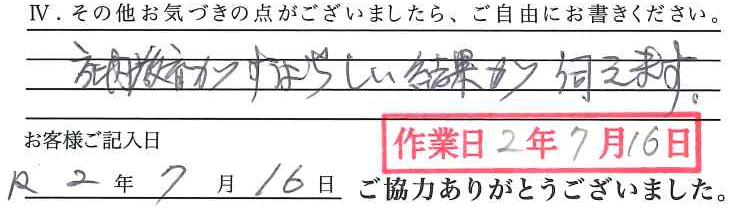 Ⅳ．その他お気づきの点がございましたら、ご自由にお書きください。
社内教育がすばらしい結果が伺えます。
お客様ご記入日
作業日 2年7月16日
R 2 年 7 月 16 日 ご協力ありがとうございました。